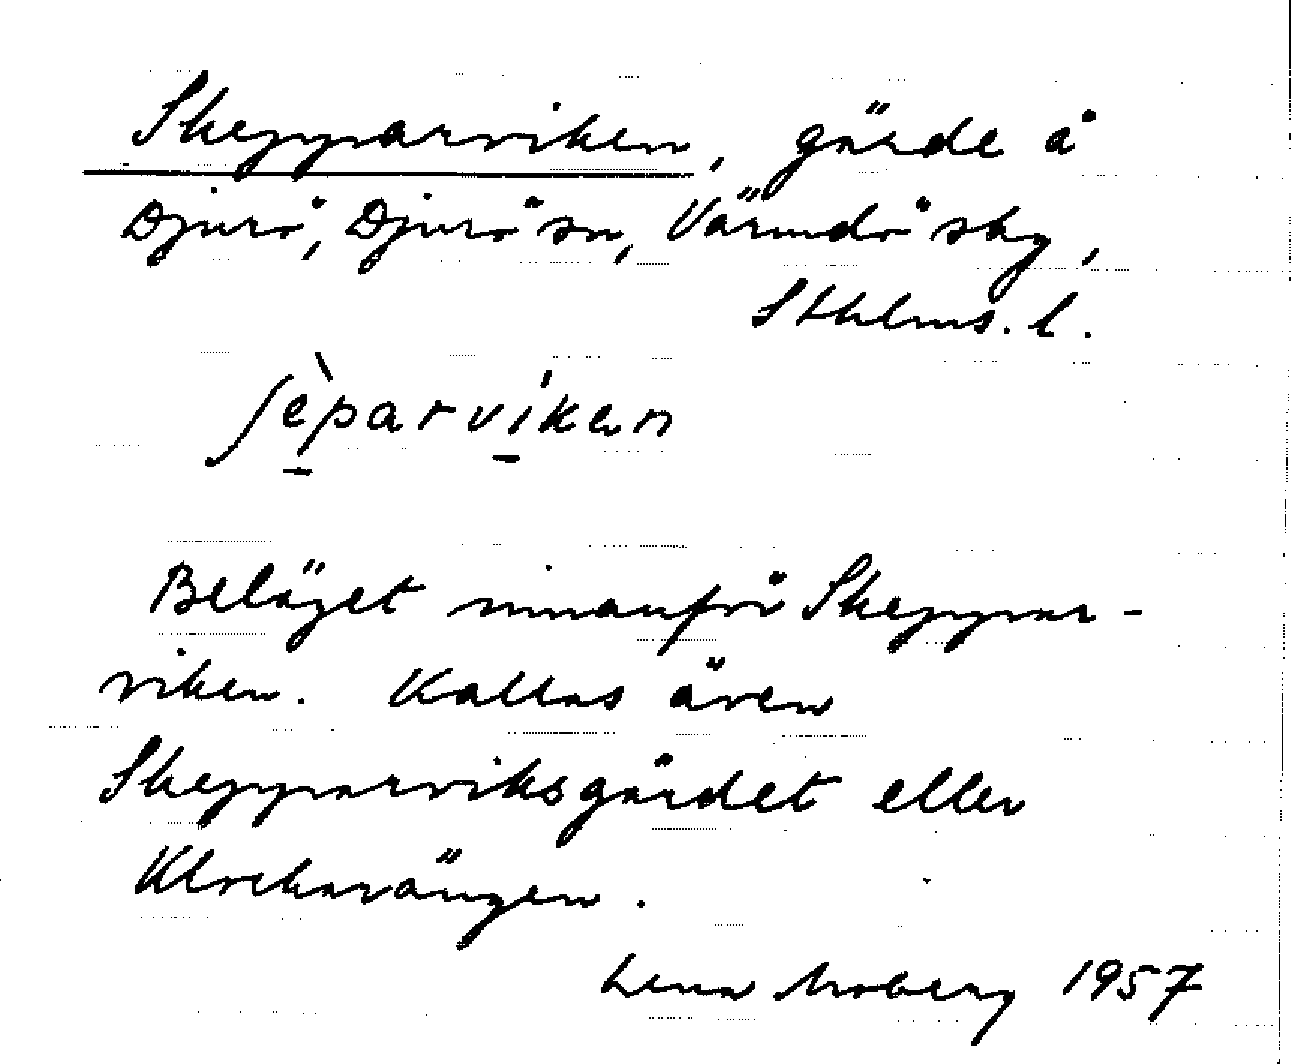 Skepparviken, gärde å
Djurö, Djurö sn, Värmdö skg,
Sthlms. l.
ʃèparvíken
Beläget innanför Skeppar-
viken. Kallas även
Skepparviksgärdet eller
Klockarängen.
Lena Moberg 1957